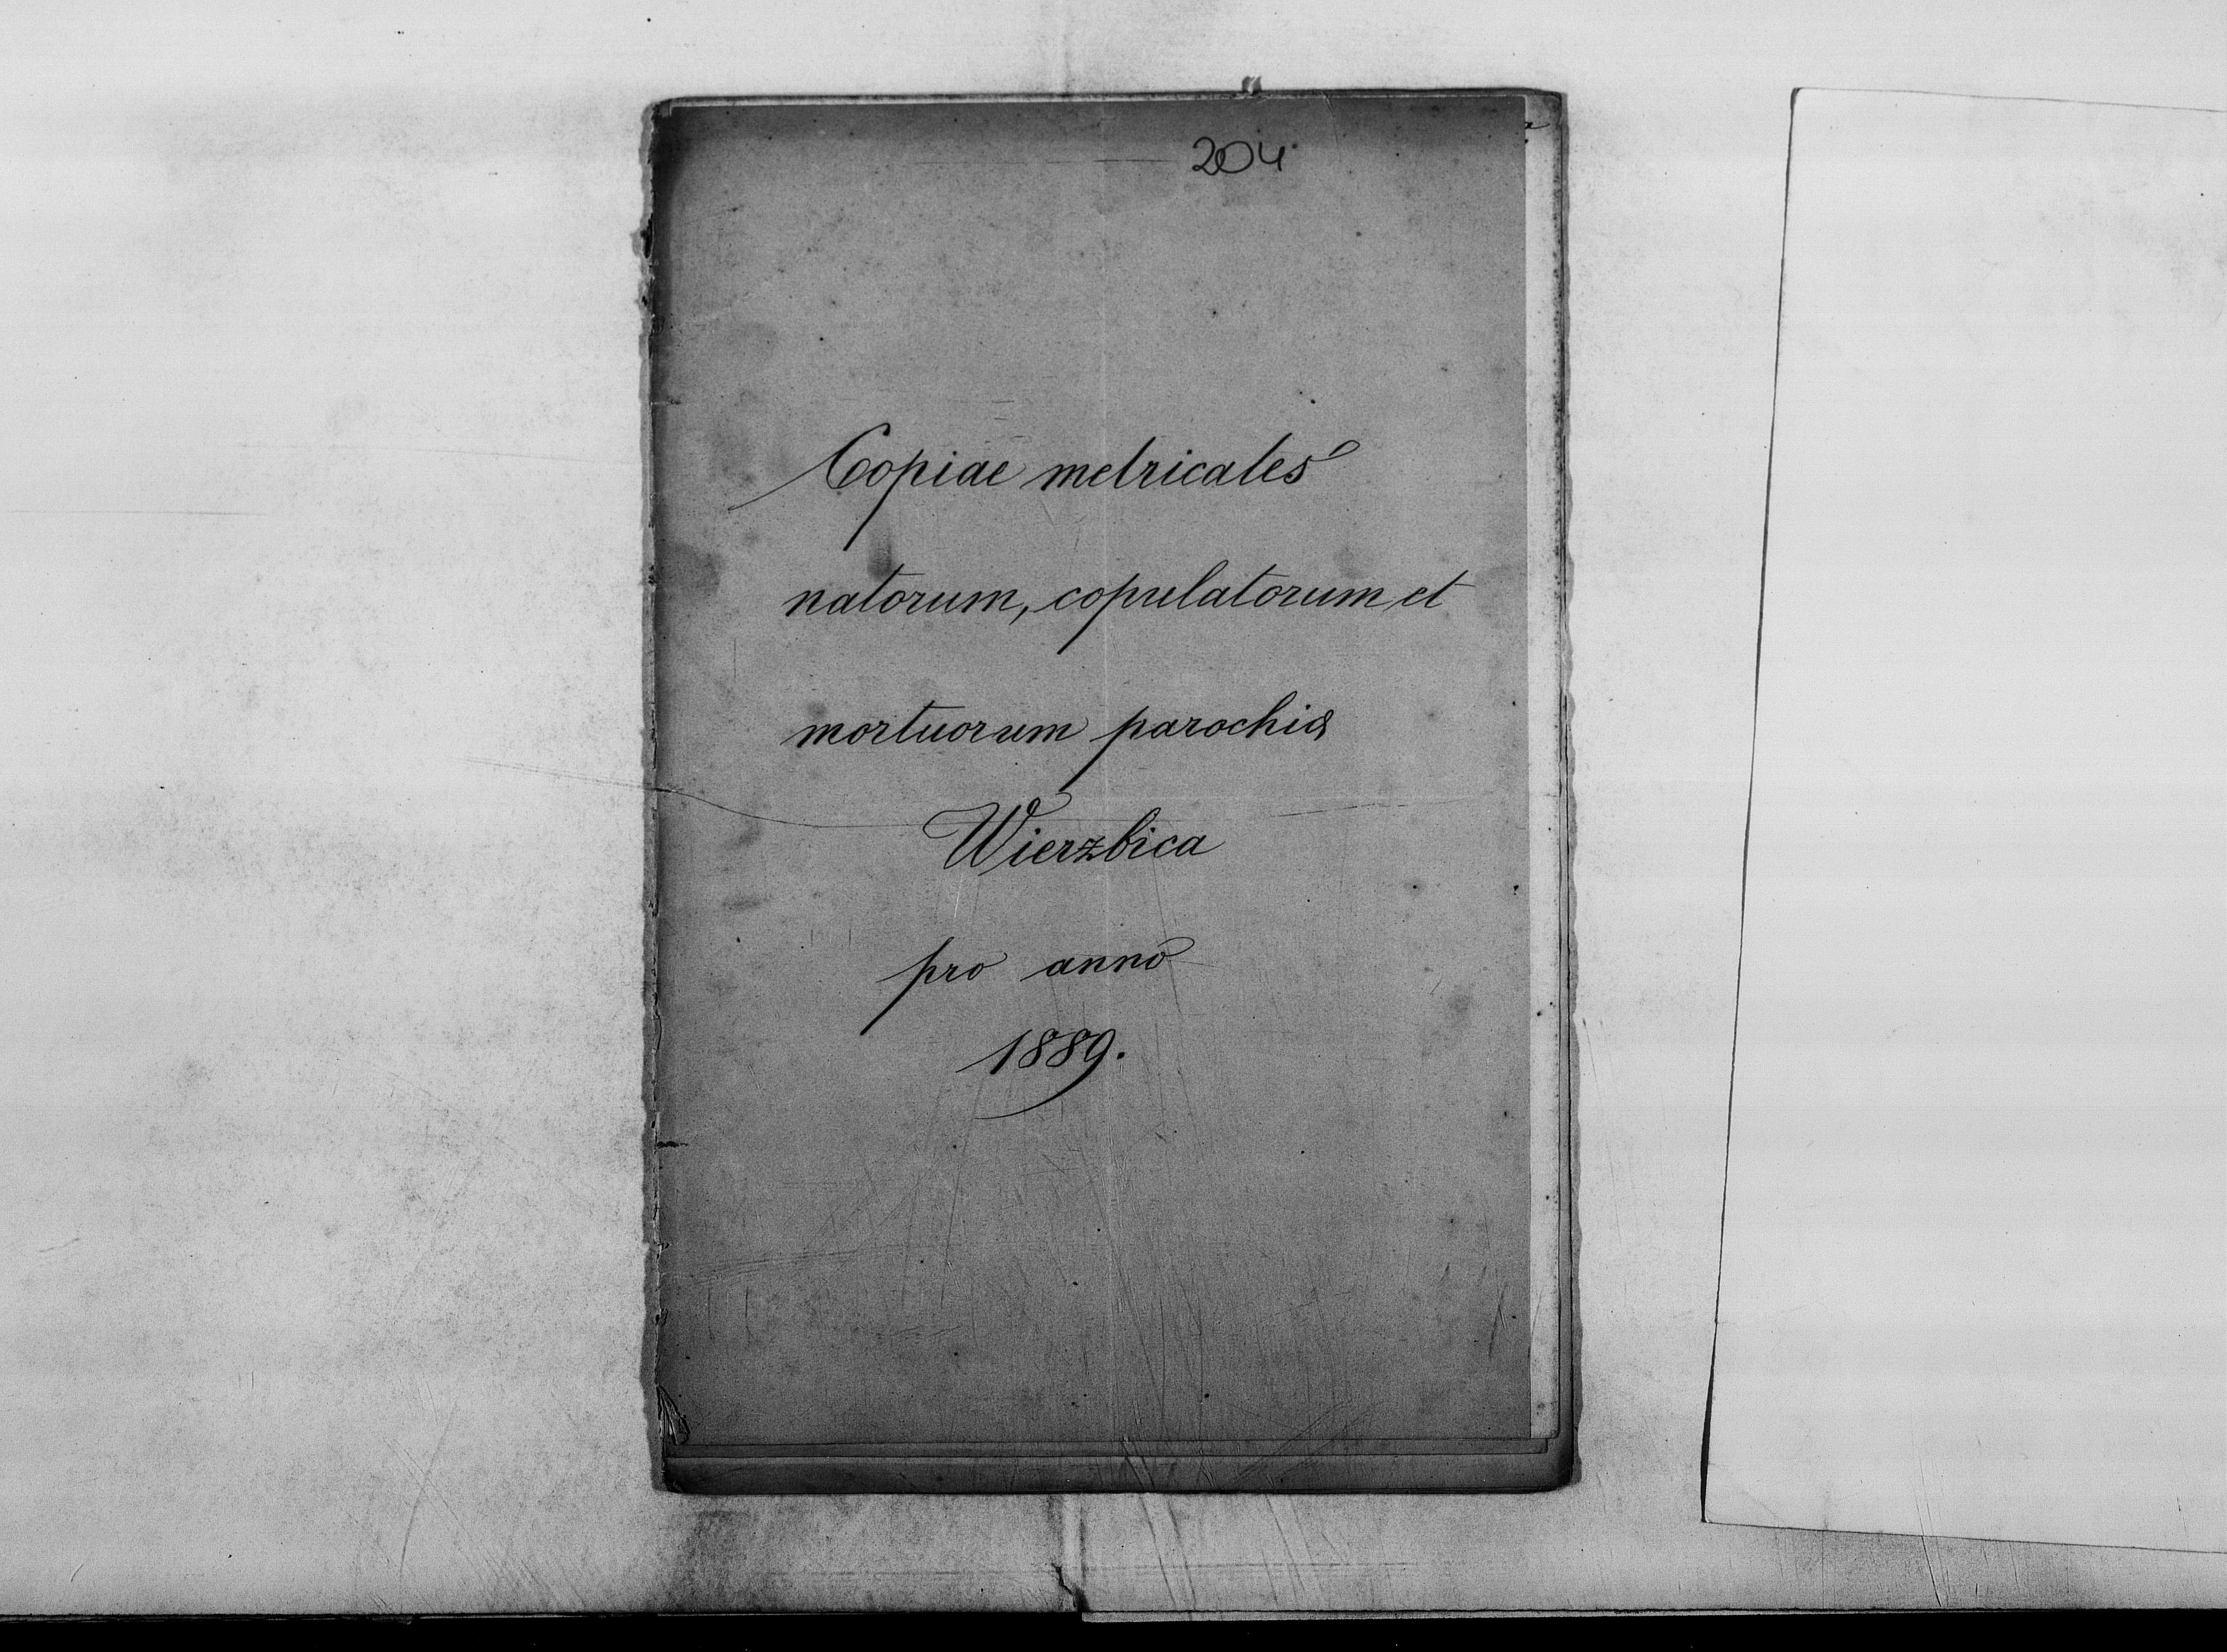 204
Copiae metricales
natorum, copulatorum et
mortuorum parochiæ
Wierzbica
pro anno
1889.